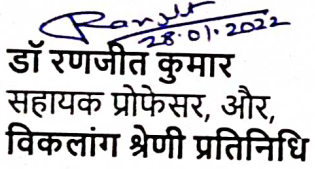 Ranjit
28.01.2022
डॉ रणजीत कुमार
सहायक प्रोफेसर, और,
विकलांग श्रेणी प्रतिनिधि